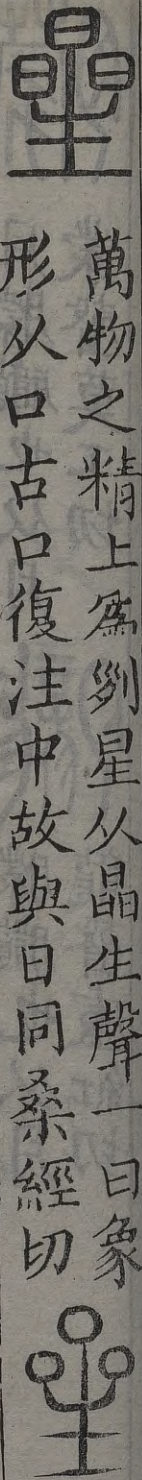 曐
萬物之精上爲列星从晶生聲一曰象
形从口古口復注中故與日同桑經切